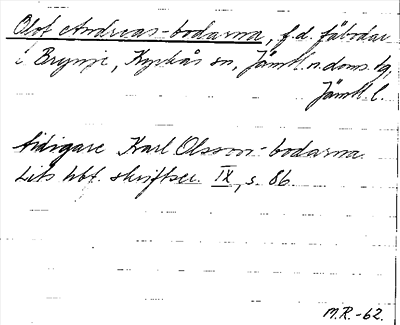 Olof Andreas-bodarna, f.d. fäbodar
i Brynje, Kyrkås sn, Jämtl. n. doms. tg,
Jämtl. l.
tidigare Karl Olsson-bodarna.
Lits hbt. skriftser. IX, s. 86.
M.R.-62.